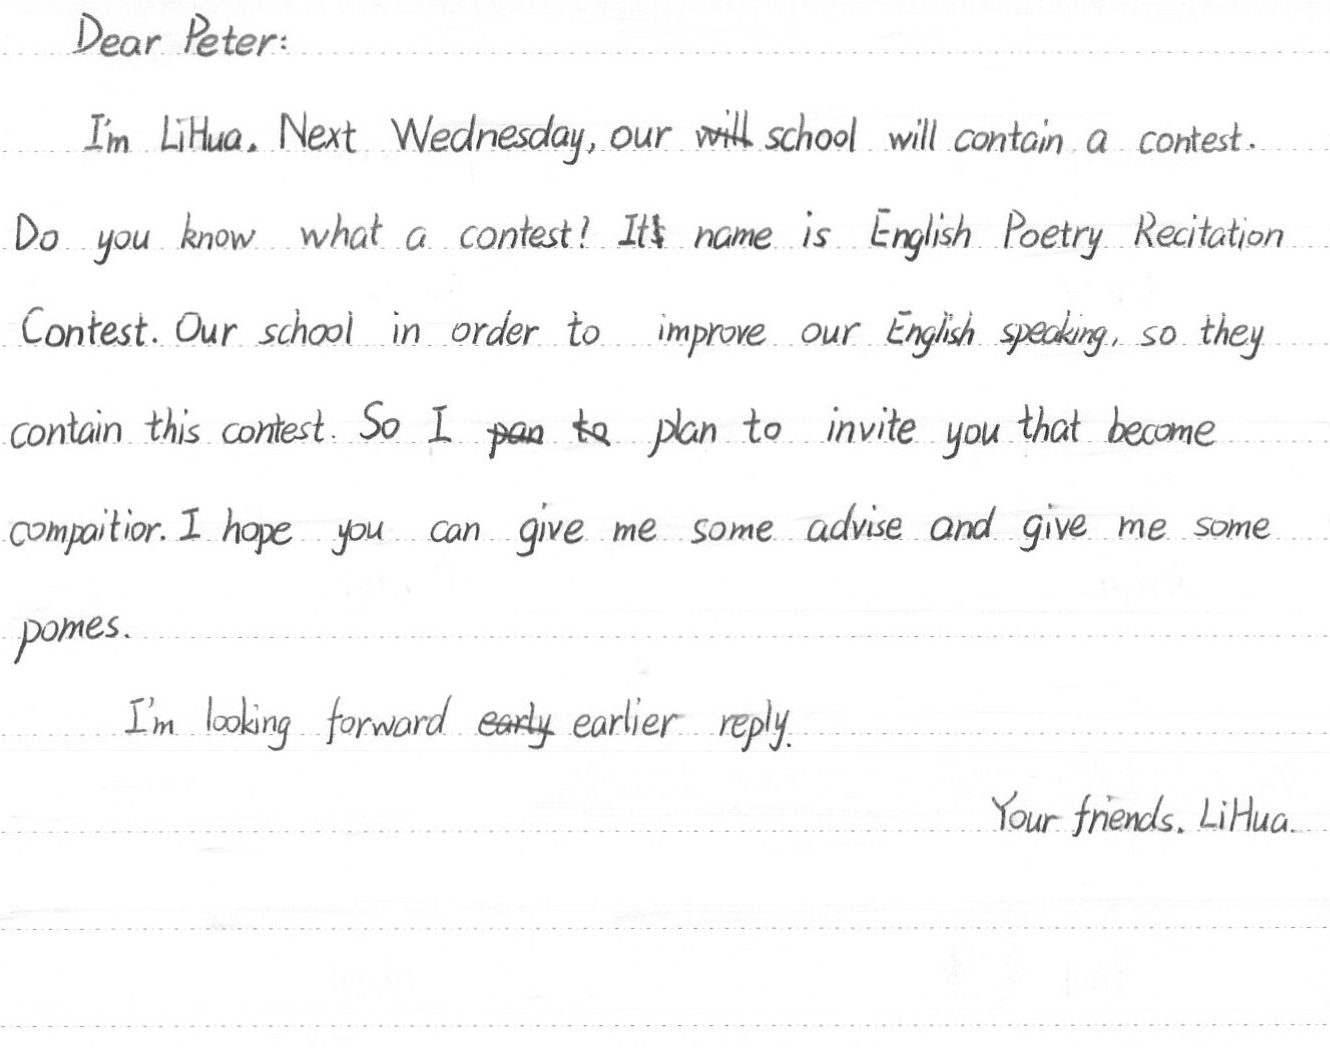 Dear Peter:
I'm LiHua. Next Wednesday, our will school will contain a contest.
Do you know what a contest! Its name is English Poetry Recitation
Contest. Our school in order to improve our English speaking, so they
contain this contest. So I pan to plan to invite you that become
compaitior. I hope you can give me some advise and give me some
pomes.
I'm looking forward early earlier reply.
Your friends. LiHua.